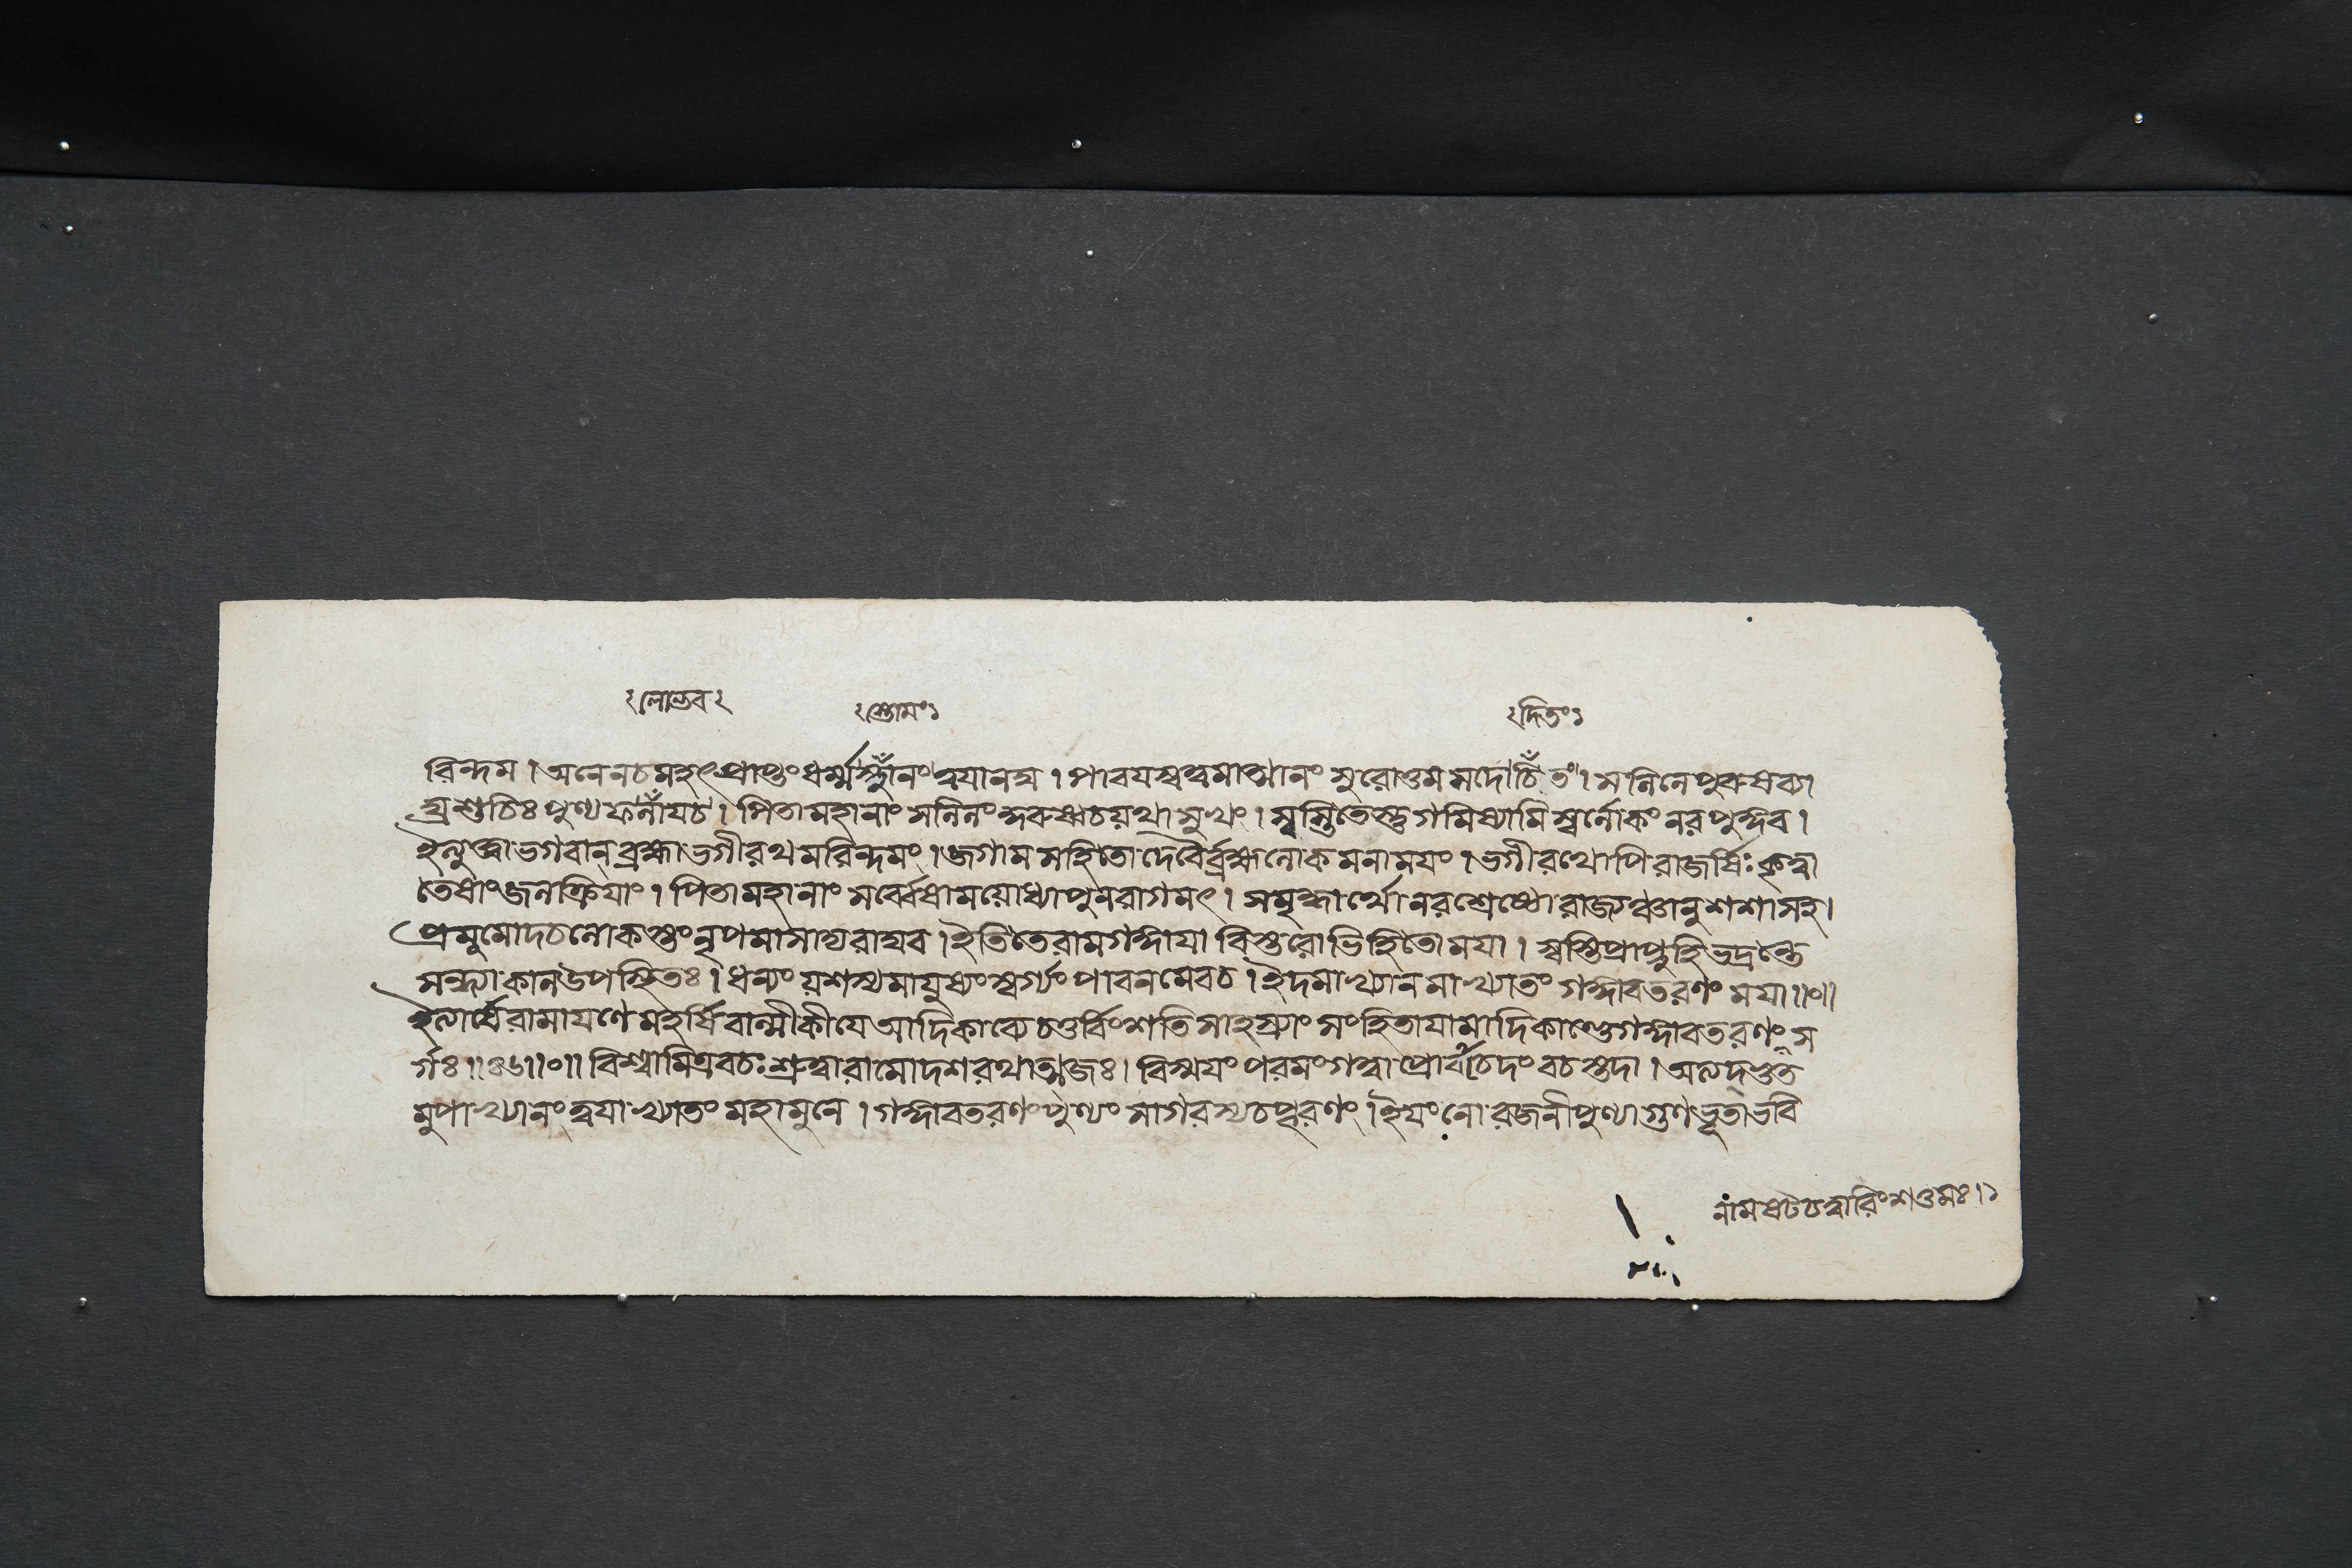 ঃলোদ্ভবঃ
ঃস্তোমংঃ
ঃদিতংঃ
রিন্দম। অনেনচমহৎপ্রাপ্তংধর্ম্মস্থানংত্বযানঘ। পাবযস্বত্বমাত্মানং সুরোত্তমসদোচিতং। সলিলেপুরুষব্যা
ঘ্রশুচিঃ পুণ্যফলাযচ। পিতামহানাং সলিলংকুরুষ্বচয়থাসুখং। স্বস্তিতেস্তুগমিষ্যামিস্বর্লোকং নরপুঙ্গব।
ইত্যুক্ত্বাভগবান্ ব্রহ্মাভগীরথমরিন্দমং। জগাম সহিতোদেবৈর্ব্রহ্মলোকমনাময়ং। ভগীরথোপিরাজর্ষিঃ কৃত্বা
তেষাংজলক্রিযাং। পিতামহানাং সর্ব্বেষাময়োধ্যাপুনরাগমৎ। সমৃদ্ধার্থোনরশ্রেষ্ঠোরাজ্যঞ্চানুশশাসহ।
প্রমুমোদচলোকস্তংনৃপমাসাদ্যরাঘব। ইতিতেরামগঙ্গাযা বিস্তরোভিহিতোময়া। স্বস্তিপ্রাপ্নুহিভদ্রন্তে
সন্ধ্যাকালউপস্থিতঃ। ধন্যং য়শস্যমাযুষ্যংস্বর্গ্যং পাবনমেবচ। ইদমাখ্যানমাখ্যাতং গঙ্গাবতরণং মযা॥০॥
ইত্যার্ষেরামাযণে মহর্ষিবাল্মীকীযে আদিকাব্যে চতুর্বিংশতি সাহস্র্যাং সংহিতাযামাদিকাণ্ডেগঙ্গাবতরণং স
র্গঃ॥৪৬॥০॥ বিশ্বামিত্রবচঃ শ্রুত্বারামোদশরথাত্মজঃ। বিস্ময়ং পরমংগত্বাপ্রোবাচেদং বচস্তদা। অত্যদ্ভুত
মুপাখ্যানংত্বযাখ্যাতং মহামুনে। গঙ্গাবতরণংপুণ্যং সাগরস্যচপূরণং। ইয়ংনোরজনীপুণ্যাগুণভূতাভবি
নামষট্চত্বারিংশত্তমঃ।১